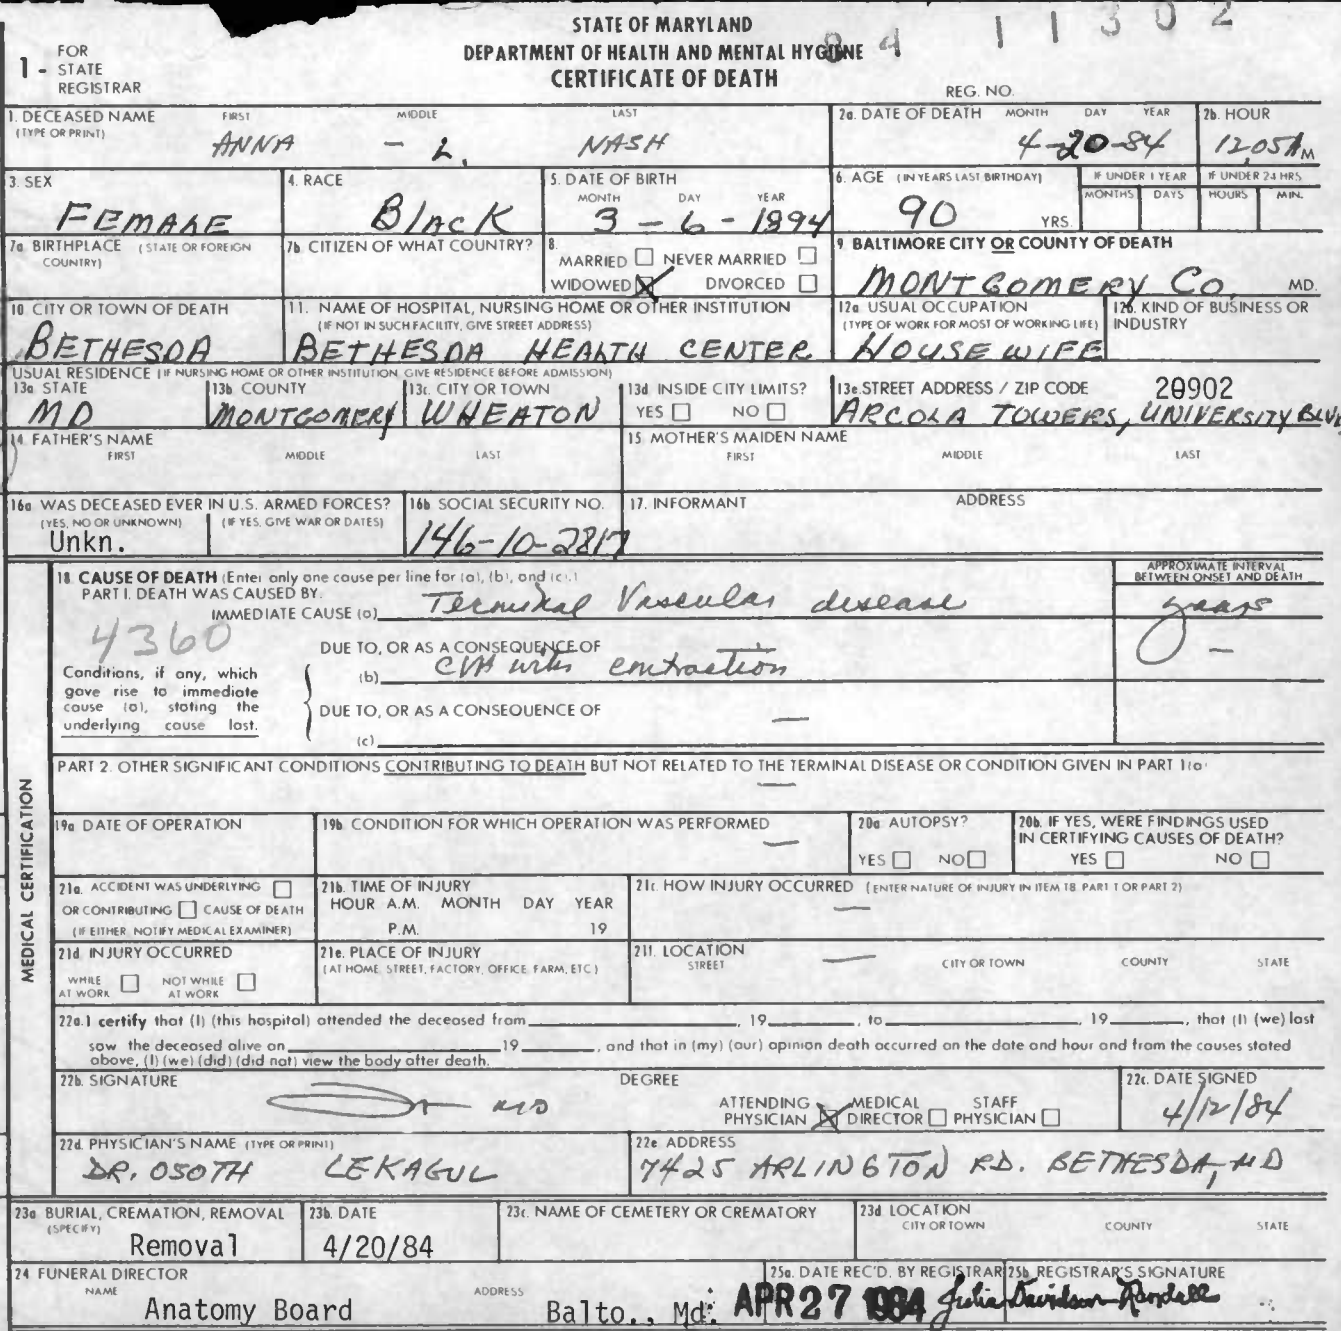 STATE OF MARYLAND
DEPARTMENT OF HEALTH AND MENTAL HYGIENE
CERTIFICATE OF DEATH
84 11302
1 - FOR STATE REGISTRAR
REG. NO.
1. DECEASED NAME (TYPE OR PRINT) FIRST MIDDLE LAST
ANNA - L. NASH
2a. DATE OF DEATH MONTH DAY YEAR
4-20-84
2b. HOUR
12,05A M
3. SEX
FEMALE
4. RACE
Black
5. DATE OF BIRTH MONTH DAY YEAR
3 - 6 - 1894
6. AGE (IN YEARS LAST BIRTHDAY)
90 YRS.
IF UNDER 1 YEAR MONTHS DAYS
IF UNDER 24 HRS. HOURS MIN.
7a. BIRTHPLACE (STATE OR FOREIGN COUNTRY)
7b. CITIZEN OF WHAT COUNTRY?
8. MARRIED NEVER MARRIED
WIDOWED X DIVORCED
9. BALTIMORE CITY OR COUNTY OF DEATH
MONTGOMERY CO. MD.
10. CITY OR TOWN OF DEATH
BETHESDA
11. NAME OF HOSPITAL, NURSING HOME OR OTHER INSTITUTION
(IF NOT IN SUCH FACILITY, GIVE STREET ADDRESS)
BETHESDA HEALTH CENTER
12a. USUAL OCCUPATION
(TYPE OF WORK FOR MOST OF WORKING LIFE)
HOUSEWIFE
12b. KIND OF BUSINESS OR INDUSTRY
USUAL RESIDENCE (IF NURSING HOME OR OTHER INSTITUTION GIVE RESIDENCE BEFORE ADMISSION)
13a. STATE
MD
13b. COUNTY
MONTGOMERY
13c. CITY OR TOWN
WHEATON
13d INSIDE CITY LIMITS?
YES NO
13e. STREET ADDRESS / ZIP CODE 20902
ARCOLA TOWERS, UNIVERSITY BLVD
14. FATHER'S NAME
FIRST MIDDLE LAST
15. MOTHER'S MAIDEN NAME
FIRST MIDDLE LAST
16a WAS DECEASED EVER IN U.S. ARMED FORCES?
(YES, NO OR UNKNOWN) (IF YES, GIVE WAR OR DATES)
Unkn.
16b SOCIAL SECURITY NO.
146-10-2817
17. INFORMANT ADDRESS
MEDICAL CERTIFICATION
18. CAUSE OF DEATH (Enter only one cause per line for (a), (b), and (c).)
PART I. DEATH WAS CAUSED BY:
IMMEDIATE CAUSE (a) Terminal Vascular disease
APPROXIMATE INTERVAL BETWEEN ONSET AND DEATH
years
4360
DUE TO, OR AS A CONSEQUENCE OF
(b) CVA with contraction —
Conditions, if any, which
gave rise to immediate
cause (a), stating the
underlying cause last.
DUE TO, OR AS A CONSEQUENCE OF
(c) —
PART 2. OTHER SIGNIFICANT CONDITIONS CONTRIBUTING TO DEATH BUT NOT RELATED TO THE TERMINAL DISEASE OR CONDITION GIVEN IN PART 1(a)
—
19a DATE OF OPERATION
19b. CONDITION FOR WHICH OPERATION WAS PERFORMED
—
20a AUTOPSY?
YES NO
20b. IF YES, WERE FINDINGS USED
IN CERTIFYING CAUSES OF DEATH?
YES NO
21a. ACCIDENT WAS UNDERLYING
OR CONTRIBUTING CAUSE OF DEATH
(IF EITHER NOTIFY MEDICAL EXAMINER)
21b. TIME OF INJURY
HOUR A.M. MONTH DAY YEAR
P.M. 19
21c. HOW INJURY OCCURRED (ENTER NATURE OF INJURY IN ITEM 18 PART 1 OR PART 2)
—
21d INJURY OCCURRED
WHILE AT WORK NOT WHILE AT WORK
21e. PLACE OF INJURY
(AT HOME, STREET, FACTORY, OFFICE, FARM, ETC.)
21f. LOCATION
STREET — CITY OR TOWN COUNTY STATE
22a. I certify that (I) (this hospital) attended the deceased from , 19 , to , 19 , that (I) (we) last
saw the deceased alive on 19 , and that in (my) (our) opinion death occurred on the date and hour and from the causes stated
above, (I) (we) (did) (did not) view the body after death.
22b. SIGNATURE DEGREE
MD
ATTENDING PHYSICIAN X MEDICAL DIRECTOR STAFF PHYSICIAN
22c. DATE SIGNED
4/12/84
22d. PHYSICIAN'S NAME (TYPE OR PRINT)
DR. OSOTH LEKAGUL
22e ADDRESS
7425 ARLINGTON RD. BETHESDA, MD
23a BURIAL, CREMATION, REMOVAL (SPECIFY)
Removal
23b. DATE
4/20/84
23c. NAME OF CEMETERY OR CREMATORY
23d LOCATION
CITY OR TOWN COUNTY STATE
24 FUNERAL DIRECTOR
NAME ADDRESS
Anatomy Board Balto., Md.
25a. DATE REC'D. BY REGISTRAR
APR 27 1984
25b. REGISTRAR'S SIGNATURE
Julia Davidson-Randall